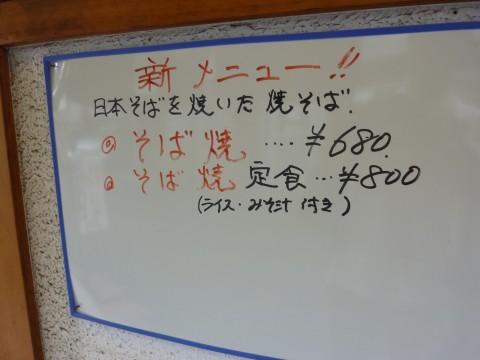 新メニュー!!
日本そばを焼いた焼そば.
◎そば焼 ····¥680.
◎そば焼定食···¥800
(ライス・みそ汁付き)